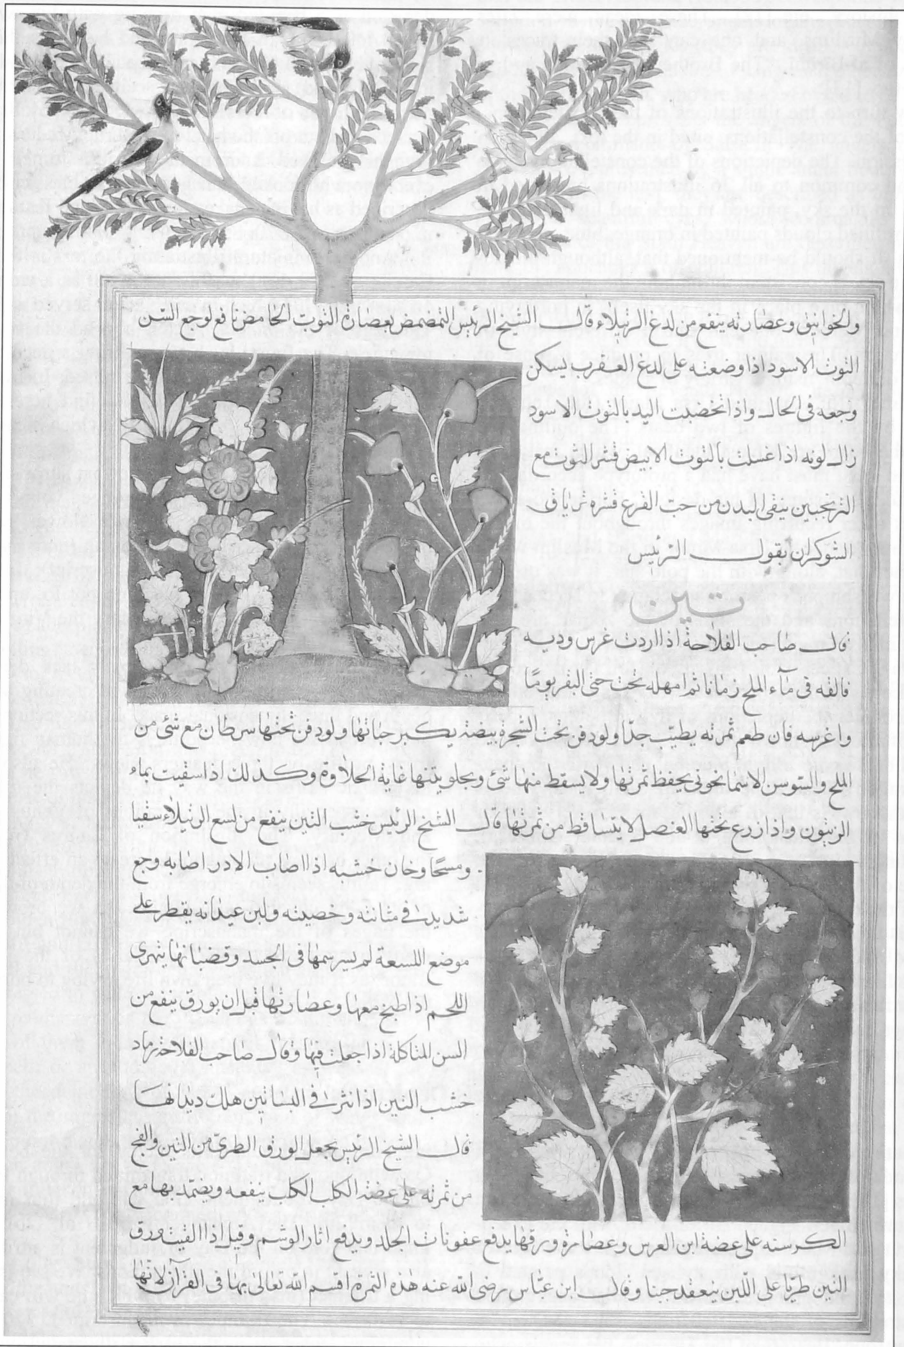 والخوانيق وعصارته ينفع من لدغ الرتيلاء قال الشيخ الرئيس التمضمض بعصارة التوت الحامض نافع لوجع السن
التوت الاسود اذا وضعته على لدغ العقرب يسكن
وجعه فى الحال واذا تخضبت اليد بالتوت الاسود
زال لونه اذا غسلت بالتوت الابيض قشر التوت مع
الترنجبين ينقى البدن من حب القرع قشره ترياق
الشوكران بقول الرئيس
تين
قال صاحب الفلاحة اذا اردت غرس وديه
فالقه فى ماء الملح زمانا ثم امهله تحت خثى البقر يوما
واغرسه فان طعم ثمرته يطيب جدا ولو دفن تحت الشجرة بيضة يكبر حباتها ولو دفن تحتها سرطان مع شئ من
الملح والسوسن الاسمانجونى يحفظ ثمرتها ولا يسقط منها شئ ويحلو تينها غاية الحلاوة وكذلك اذا سقيت بماء
الزيتون واذا زرع تحتها العنصل لا يتساقط من ثمرتها قال الشيخ الرئيس خشب التين ينفع من لسع الرتيلاء سقيا
ومسحا ودخان خشبه اذا اصاب الادر اصابه وجع
شديد فى مثانته وخصيته ولبن عيدانه يقطر على
موضع اللسعة لم يسر سمها فى الجسد وقضبانها يهرى
اللحم اذا طبخ معها وعصارتها قبل ان يورق ينفع من
السن المتاكلة اذا جعلت فيها وقال صاحب الفلاحة رماد
خشب التين اذا نثر فى البساتين هلك ديدانها
قال الشيخ الرئيس يجعل الورق الطرى من التين والفج
من ثمرته على عضة الكلب الكلب ينفعه ويضمد بها مع
الكرسنه على عضة ابن العرس وعصارة ورقها يدفع عفونات الجلد ويدفع اثار الوشم وقيل اذا القيت ورق
التين طريا على اللبن ينعقد جبنا وقال ابن عباس رضى الله عنه هذه الثمرة اقسم الله تعالى بها فى القرآن لانها